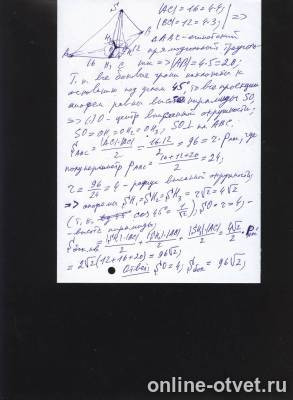 S
|AC| = 16 = 4·4;
|BC| = 12 = 4·3; =>
В
А
16
С
Δ АВС - египетский
прямоугольный треуголь-
ник => |AB| = 4·5 = 20;
Т, к, все боковые грани наклонены к
основанию под углом 45°, то все проекции
апофем равны высоте пирамиды SO,
=> (·) O - центр вписанной окружности;
SO = OH₁ = OH₂ = OH₃, SO⊥ пл ABC.
S ABC = |AC|·|BC| / 2 = 16·12 / 2 = 96 = r·P пол, где
полупериметр P ABC = 16+12+20 / 2 = 24,
r = 96/24 = 4 - радиус вписанной окружности,
=> апофемы SH₁ = SH₂ = SH₃ = r√2 = 4√2
(т, к, cos 45° = 1/√2), SO = r = 4, -
- высота пирамиды;
= 2√2 (12+16+20) = 96√2;
Ответ: SO = 4; S бок = 96√2,
online-otvet.ru